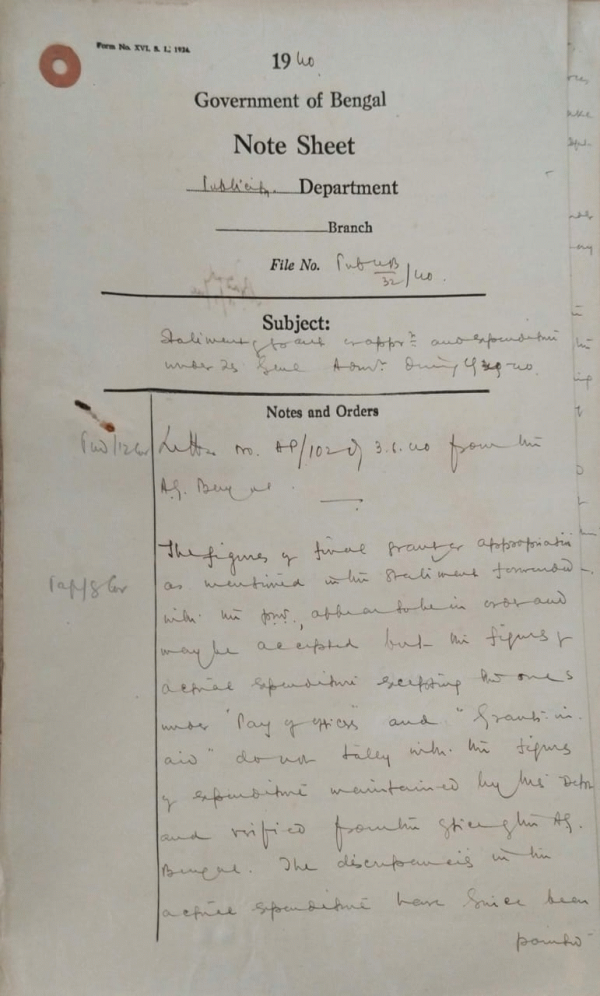 Form No. XVI. S. I., 1934.
1940
Government of Bengal
Note Sheet
Publicity Department
Branch
File No. Pub UB/32/40.
Subject:
Statement of grant or appr: and expenditure
under 25 Genl Admn. During 1939-40.
Notes and Orders
Letter No. AP/102 of 3.6.40 from the
A.G. Bengal.
The figures of final grant or appropriation
as mentioned in the statement forwarded
with the appear to be in order and
may be accepted but the figures of
actual expenditure excepting the ones
under "Pay of officers" and "Grants-in-
aid" do not tally with the figures
of expenditure maintained by this Deptt
and verified from the office of the A.G.
Bengal. The discrepancies in the
actual expenditure have since been
pointed